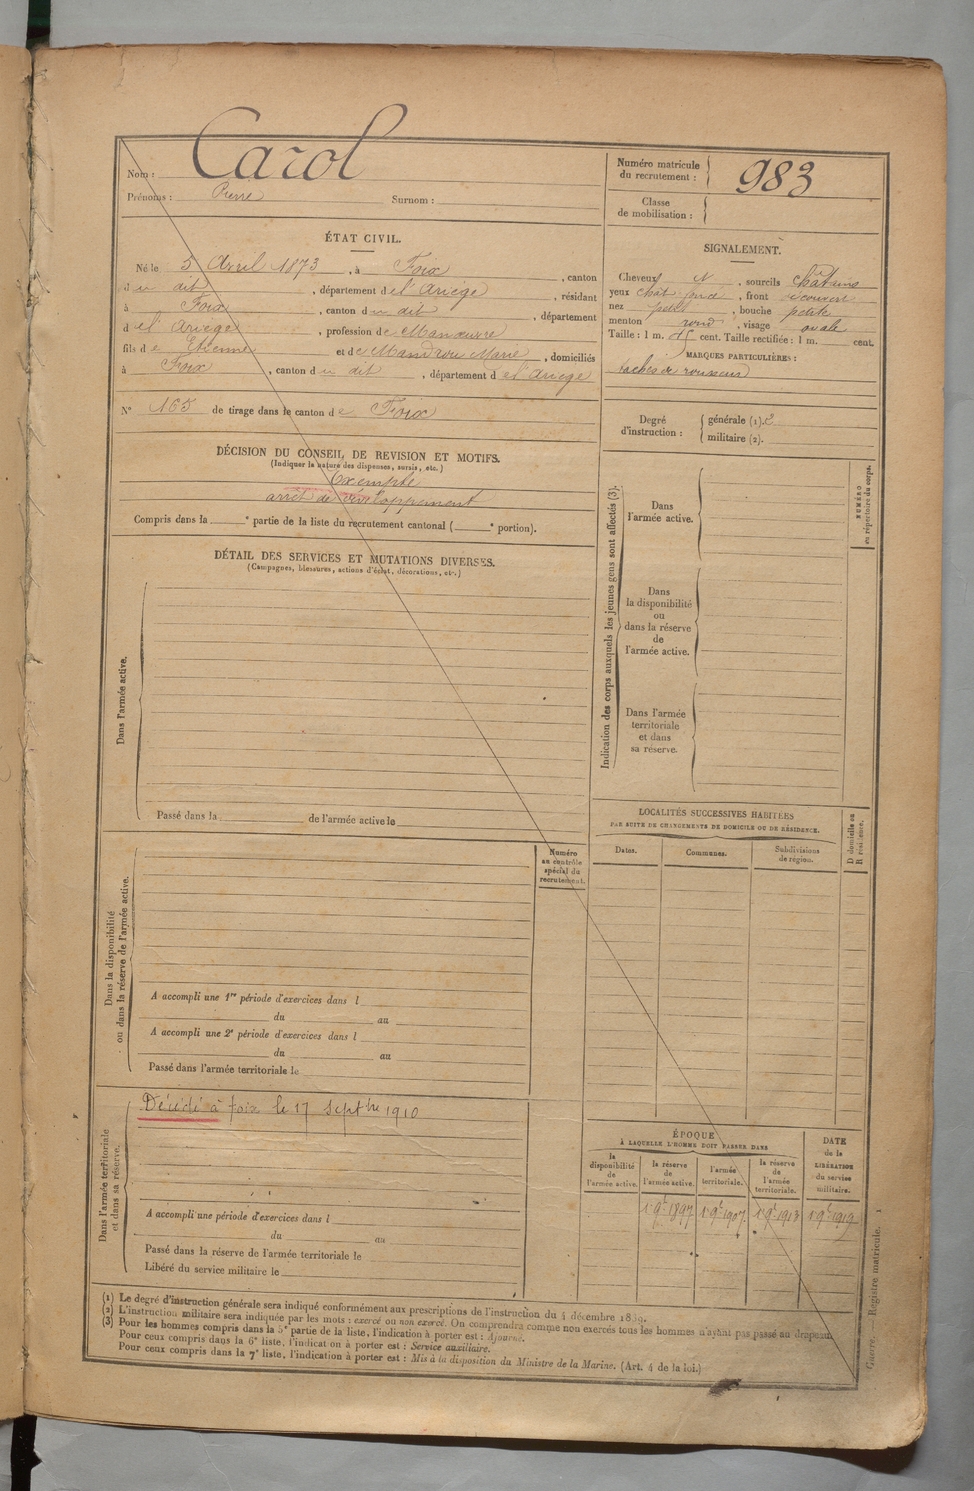 Nom : Carol
Prénoms : Pierre Surnom :
Numéro matricule du recrutement : 983
Classe de mobilisation :
ÉTAT CIVIL.
Né le 5 Avril 1873, à Foix, canton
du dit, département de l'Ariège, résidant
à Foix, canton du dit, département
de l'Ariège, profession de Manœuvre
fils de Etienne et de Mandrou Marie, domiciliés
à Foix, canton du dit, département de l'Ariège
N° 165 de tirage dans le canton de Foix
SIGNALEMENT.
Cheveux N, sourcils châtains
yeux chât foncé, front découvert
nez petit, bouche petite
menton rond, visage ovale
Taille : 1 m. cent. Taille rectifiée : 1 m. cent.
MARQUES PARTICULIÈRES :
taches de rousseur
Degré d'instruction : générale (1). 2
militaire (2).
DÉCISION DU CONSEIL DE REVISION ET MOTIFS.
(Indiquer la nature des dispenses, sursis, etc.)
Exempté
arrêt de développement
Compris dans la e partie de la liste du recrutement cantonal ( e portion).
DÉTAIL DES SERVICES ET MUTATIONS DIVERSES.
(Campagnes, blessures, actions d'éclat, décorations, etc.)
Dans l'armée active.
Passé dans la de l'armée active le
Indication des corps auxquels les jeunes gens sont affectés (3).
Dans l'armée active.
Dans la disponibilité ou dans la réserve de l'armée active.
Dans l'armée territoriale et dans sa réserve.
NUMÉRO au répertoire du corps.
LOCALITÉS SUCCESSIVES HABITÉES
PAR SUITE DE CHANGEMENTS DE DOMICILE OU DE RÉSIDENCE.
Dates. Communes. Subdivisions de région.
D domicile ou R résidence.
Dans la disponibilité
ou dans la réserve de l'armée active.
Numéro au contrôle spécial du recrutement.
A accompli une 1re période d'exercices dans l
du au
A accompli une 2e période d'exercices dans l
du au
Passé dans l'armée territoriale le
Dans l'armée territoriale
et dans sa réserve.
Décédé à foix le 17 septbre 1910
A accompli une période d'exercices dans l
du au
Passé dans la réserve de l'armée territoriale le
Libéré du service militaire le
ÉPOQUE
À LAQUELLE L'HOMME DOIT PASSER DANS
la disponibilité de l'armée active.
la réserve de l'armée active.
l'armée territoriale.
la réserve de l'armée territoriale.
DATE de la LIBÉRATION du service militaire.
1 9e 1897 1 9e 1907 1 9e 1913 1 9e 1919
(1) Le degré d'instruction générale sera indiqué conformément aux prescriptions de l'instruction du 4 décembre 1889.
(2) L'instruction militaire sera indiquée par les mots : exercé ou non exercé. On comprendra comme non exercés tous les hommes n'ayant pas passé au drapeau.
(3) Pour les hommes compris dans la 5e partie de la liste, l'indication à porter est : Ajourné.
Pour ceux compris dans la 6e liste, l'indication à porter est : Service auxiliaire.
Pour ceux compris dans la 7e liste, l'indication à porter est : Mis à la disposition du Ministre de la Marine. (Art. 4 de la loi.)
Guerre. — Registre matricule. 1